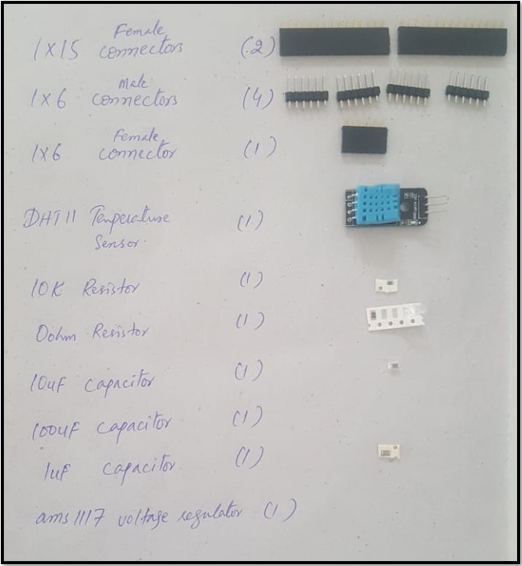 1X15 Female connectors (2)
1X6 Male connectors (4)
1X6 Female connector (1)
DHT11 Temperature Sensor. (1)
10K Resistor (1)
0ohm Resistor (1)
10uF capacitor (1)
100uF capacitor (1)
1uF capacitor (1)
ams1117 voltage regulator (1)